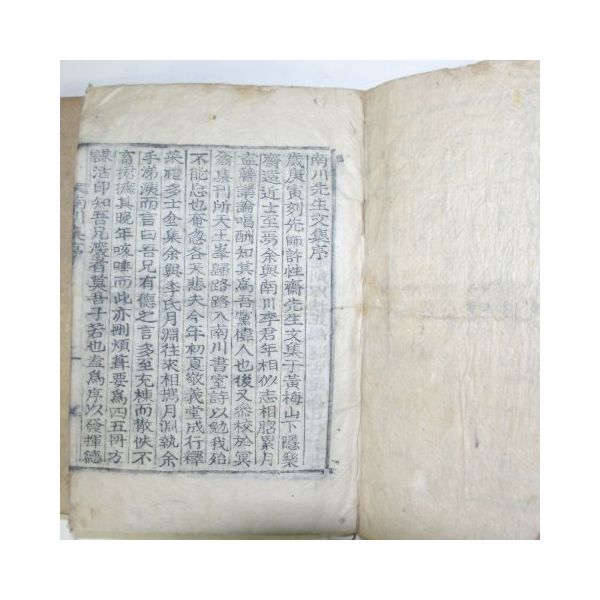 南川先生文集序
歲庚寅刻先師許性齋先生文集于黃梅山下隱樂
齋遠近士至焉余與南川李君年相似志相脗累月
盍簪講論唱酬知其爲吾黨偉人也後又參校於冥
翁集刊所大土峯歸路路入南川書室詩以勉我殆
不能忘也奄忽各天悲夫今年初夏敬義堂成行釋
菜禮多士金集余與李氏月淵往來相携月淵執余
手涕洟而言曰吾兄有德之言多至充棟而散佚不
畜捃摭其晚年咳唾而此亦刪煩葺要爲四五冊方
謀活印知吾兄淺者莫吾子若也盍爲序以發揮德
南川集序